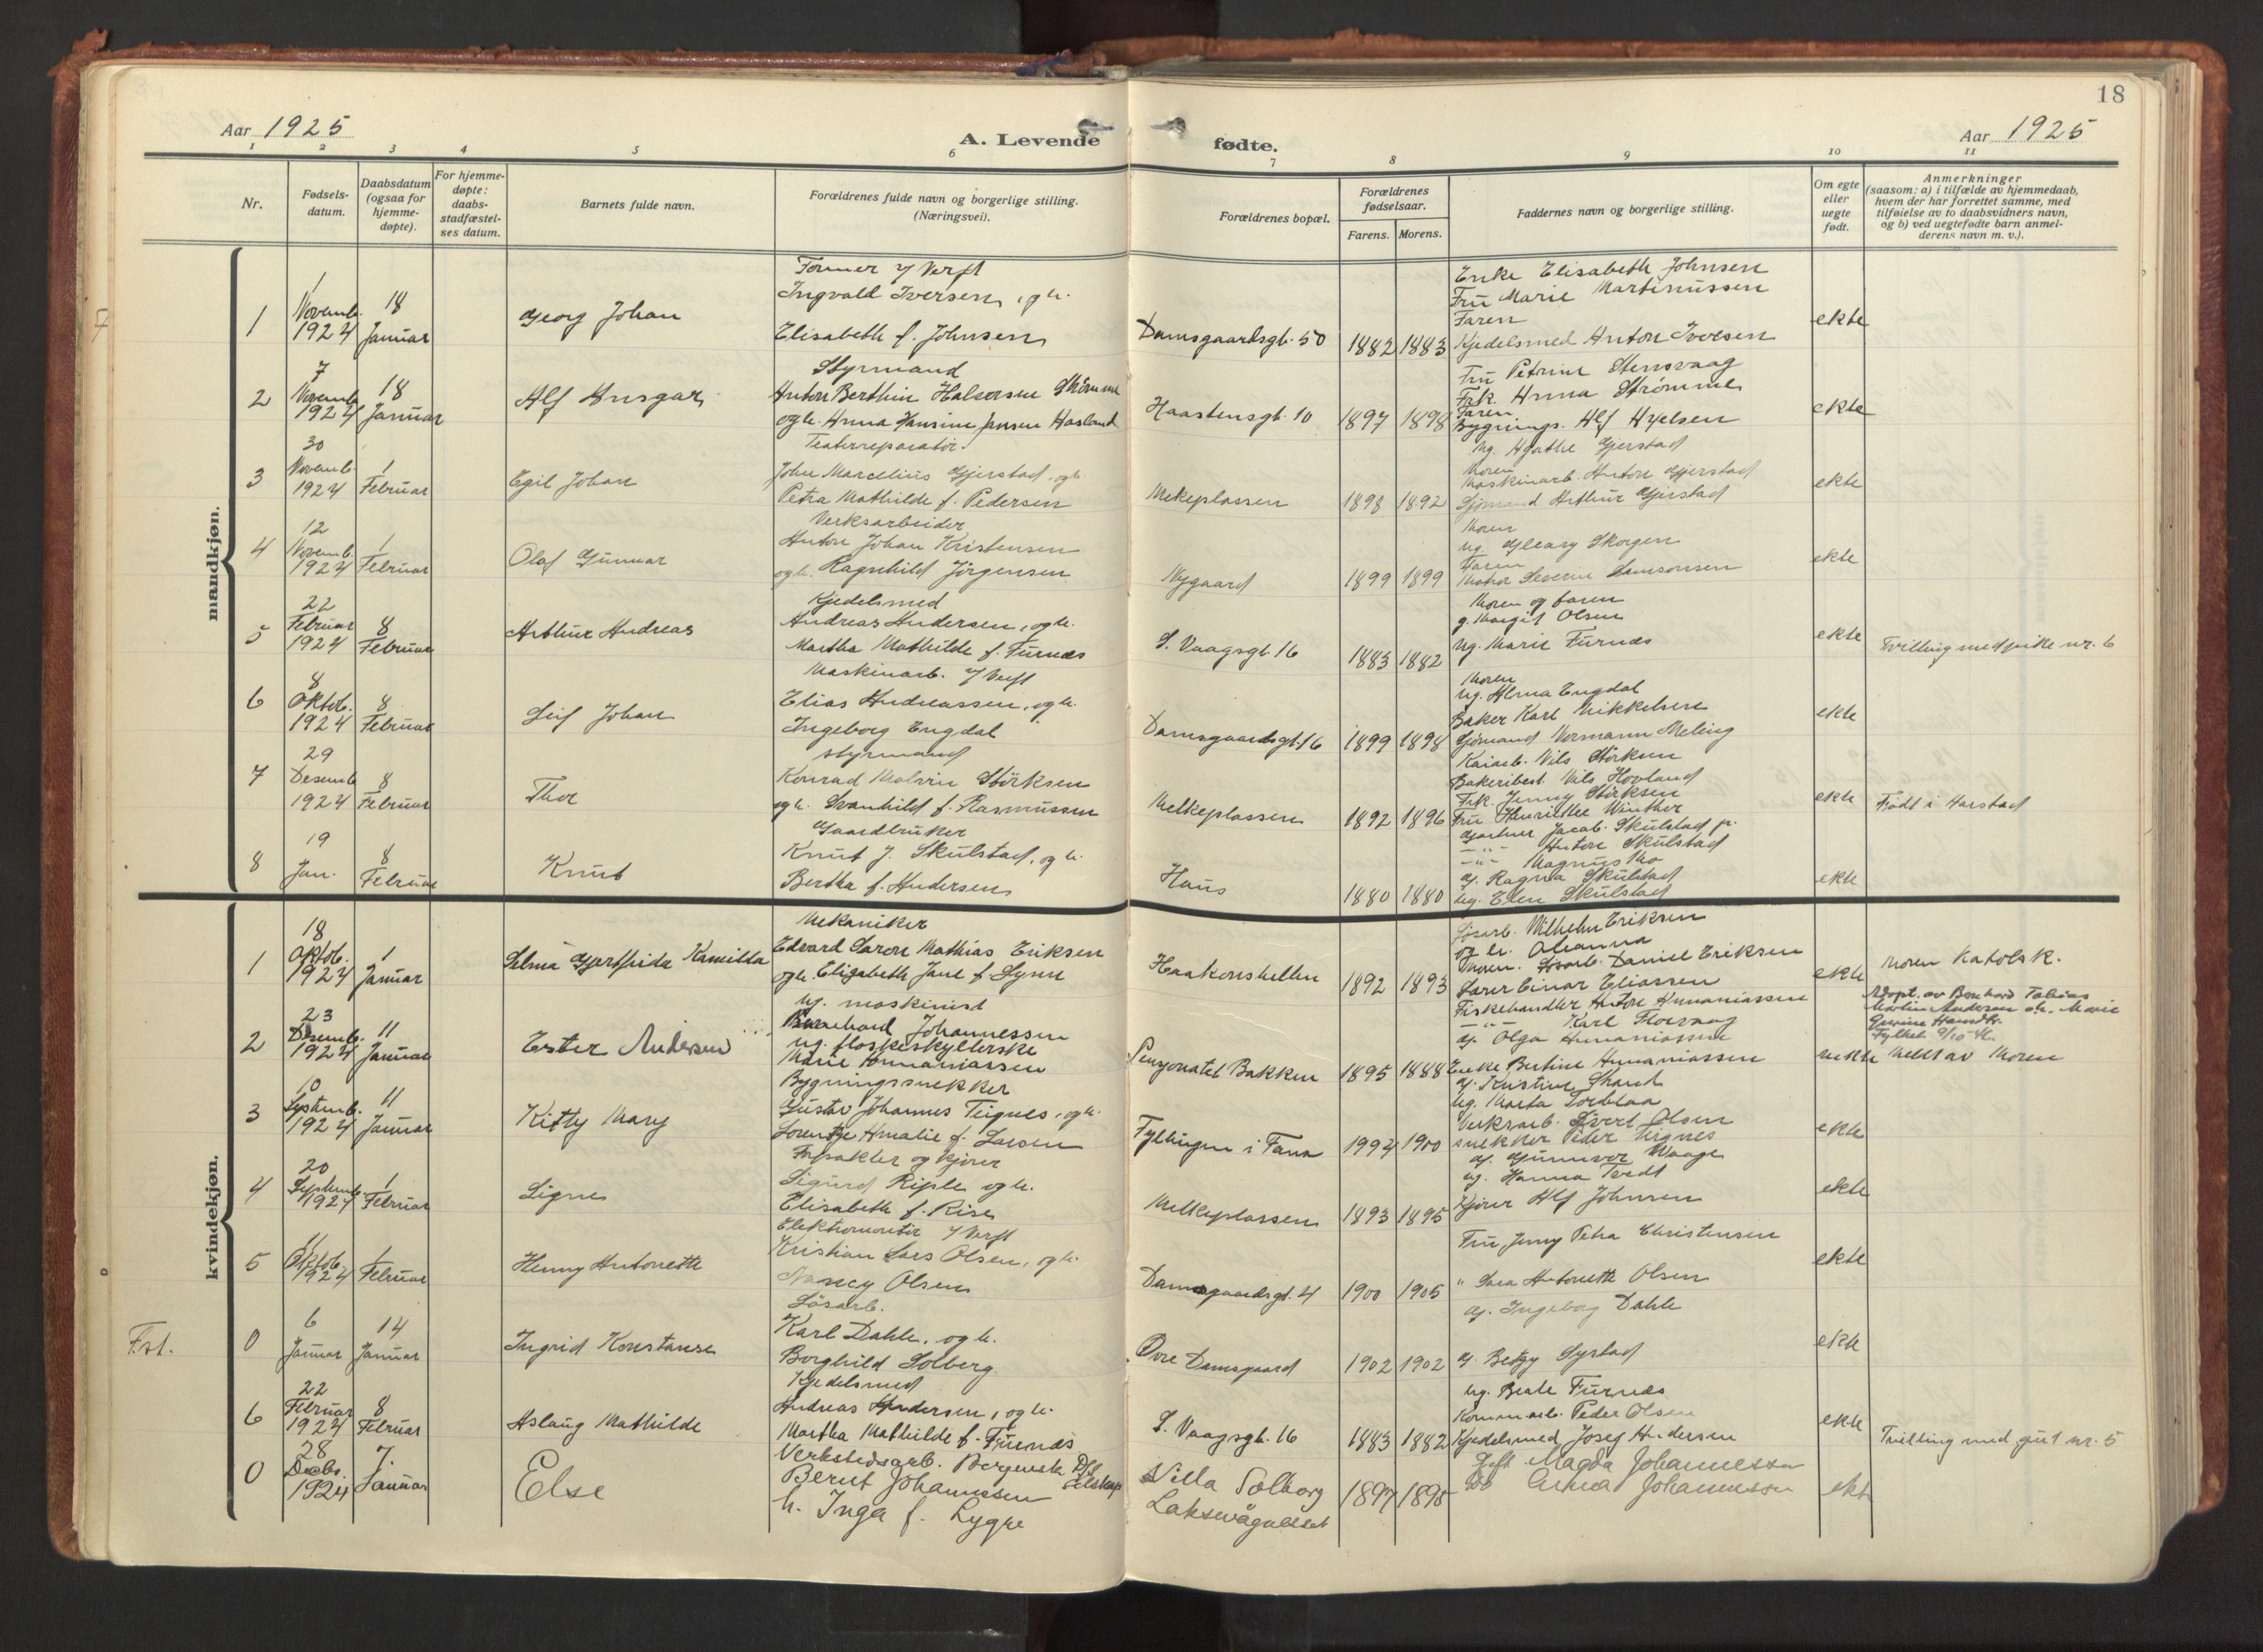 18
Aar 1925
A. Levende fødte.
Aar 1925
1 2 3 4 5 6 7 8 9 10 11
Nr.
Fødsels-
datum.
Daabsdatum
(ogsaa for
hjemme-
døpte).
For hjemme-
døpte:
daabs-
stadfæstel-
ses datum.
Barnets fulde navn.
Forældrenes fulde navn og borgerlige stilling.
(Næringsvei).
Forældrenes bopæl.
Forældrenes
fødselsaar.
Farens. Morens.
Faddernes navn og borgerlige stilling.
Om egte
eller
uegte
født.
Anmerkninger
(saasom: a) i tilfælde av hjemmedaab,
hvem der har forrettet samme, med
tilføielse av to daabsvidners navn,
og b) ved uegtefødte barn anmel-
derens navn m. v.).
mandkjøn.
1
1
Novemb.
1924
18
Januar
Georg Johan
Former v/ Verft
Ingvald Iversen, og h.
Elisabeth f. Johnsen
Damsgaardsgt. 50
1882 1883
Enke Elisabeth Johnsen
Fru Marie Martinussen
Faren
Kjedelsmed Anton Iversen
ekte
2
7
Novemb.
1924
18
Januar
Alf Ansgar
Styrmand
Anton Berthin Halvorsen Strømme
og h. Anna Hansine Jensen Hasland
Haastensgt. 10
1897 1898
Fru Petrine Stensvaag
Frk. Anna Strømme
Faren
Bygnings. Alf
ekte
3
30
Novemb.
1924
1
Februar
Egil Johan
Teaterreparatør.
John Marcelius Gjerstad, og h.
Petra Mathilde f. Pedersen
Melkeplassen
1898 1892
Ug. Agathe Gjerstad
Moren
Maskinarb. Anton Gjerstad
Sjømand Arthur Gjerstad
ekte
4
12
Novemb.
1924
1
Februar
Olaf Gunnar
Verksarbeider
Anton Johan Kristensen
og h. Ragnhild Jørgensen
Nygaard
1899 1899
Moren
Ug. Skogen
Faren
Severin Samsonsen
ekte
5
22
Februar
1924
8
Februar
Arthur Andreas
Kjedelsmed
Andreas Andersen, og h.
Martha Mathilde f. Furnæs
S. Vaagsgt. 16
1883 1882
Moren og faren
g. Margit Olsen
Ug. Marie Furnæs
ekte
Tvilling med pike nr. 6
6
8
Oktob.
1924
8
Februar
Leif Johan
Maskinarb. v/ Verft
Elias Andreassen, og h.
Ingeborg Engdal
Damsgaardsgt. 16
1899 1898
Moren
Ug. Alma Engdal
Baker Karl Mikkelsen
Sjømand Normann Meling
ekte
7
29
Desemb.
1924
8
Februar
Thor
styrmand
Konrad Malvin Störksen
og h. Svanhild f. Rasmussen
Melkeplassen
1892 1896
Kaiarb. Nils Störksen
Bakeribest. Nils Hovland
Frk. Jenny Störksen
Fru Henrikke Winther
ekte
Født i Harstad
8
19
Jan.
8
Februar
Knut
Gaardbruker
Knut J. Skulstad, og h.
Bertha f. Andersen
Haus
1880 1880
Gartner Jacob Skulstad
— " — Anton Skulstad
— " — Magnus Mo
g. Ragna Skulstad
ug. Elen Skulstad
ekte
kvindekjøn.
1
18
Oktob.
1924
1
Januar
Selma Gjertsida Kamilla
Mekaniker
Edvard Saron Mathias Eriksen
og h. Elizabeth Jane f. Lynn
Haakonshellen
1892 1893
Løsarb. Wilhelm Eriksen
og h. Oleanna
Moren. Løsarb. Daniel Eriksen
Lærer Einar Eliassen
ekte
Moren Katolsk.
2
23
Desemb.
1924
11
Januar
Ester Andersen
Ug. maskinist
Bernhard Johannessen
ug. flaskeskyllerske
Marie Annaniassen
Pensjonatet Bakken
1895 1888
Fiskehandler Anton Annaniassen
— " — Karl Florvaag
g. Olga Annaniassen
Enke Bertine Annaniassen
uekte
Adopt. av Bernhard Tobias
Martin Andersen o.h. Marie
Meldt av Moren
3
10
Septemb.
1924
11
Januar
Kitty Mary
Bygningssnekker
Gustav Johannes Teignes, og h.
Lorentze Amalie f. Larsen
Fyllingen i Fana
1994 1900
g. Kristine Strand
Ug. Marta
Verksarb. Sivert Olsen
snekker Peder Teignes
ekte
4
20
Septemb.
1924
1
Februar
Signe
Forpakter og kjører
Sigurd Riple og h.
Elisabeth f. Rise
Melkeplassen
1893 1895
g. Gunnvor Waage
ug. Hanna Tvedt
Kjører Alf Johnsen
ekte
5
11
Oktob.
1924
1
Februar
Henny Antonette
Elektromontør v/ Verft
Kristian Lars Olsen, og h.
Nancy Olsen
Damsgaardsgt. 4
1900 1905
Fru Jenny Petra Christensen
" Sara Antonette Olsen
ekte
F.st.
0
6
Januar
14
Januar
Ingrid Konstanse
Løsarb.
Karl Dahle, og h.
Borghild Solberg
Øvre Damsgaard
1902 1902
g. Ingeborg Dahle
g. Betzy Systad
ekte
6
22
Februar
1924
8
Februar
Aslaug Mathilde
Kjedelsmed
Andreas Andersen, og h.
Martha Mathilde f. Furnæs
S. Vaagsgt. 16
1883 1882
Ug. Beate Furnæs
Komm.arb. Peder Olsen
Kjedelsmed Josef Andersen
ekte
Tvilling med gut nr. 5
0
28
Decbr.
1924
7.
Januar
Else
Verkstedsarb. Bergenske Dfs. Selskap
Bernt Johannessen
h. Inga f. Lygre
Villa Solborg
Laksevågneset
1897 1895
Gift Magda Johannessen
do Anna Johannessen
ekte